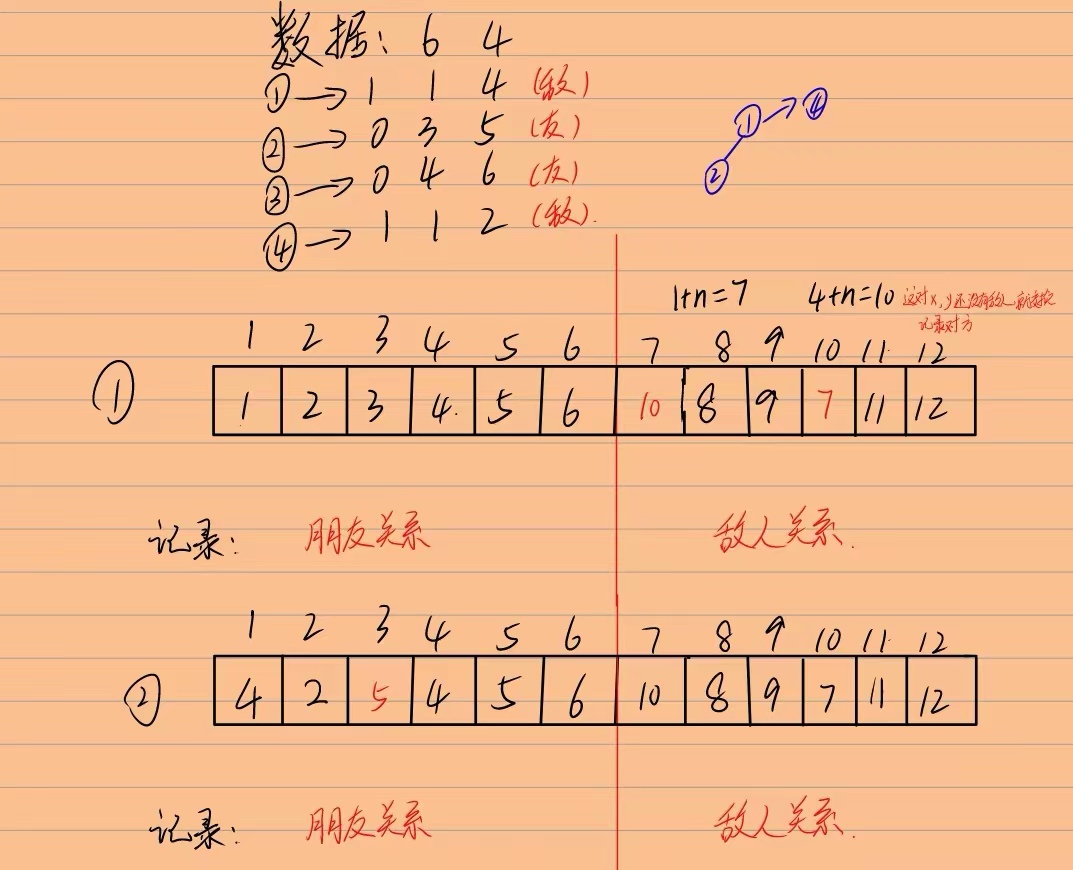 数据: 6 4
① → 1 1 4 (敌)
② → 0 3 5 (友)
③ → 0 4 6 (友)
④ → 1 1 2 (敌).
① → ④
②
1+n=7 4+n=10 这对x,y还没有敌人
记录对方
1 2 3 4 5 6 7 8 9 10 11 12
① 1 2 3 4 5 6 10 8 9 7 11 12
记录: 朋友关系 敌人关系.
1 2 3 4 5 6 7 8 9 10 11 12
② 4 2 5 4 5 6 10 8 9 7 11 12
记录: 朋友关系 敌人关系.